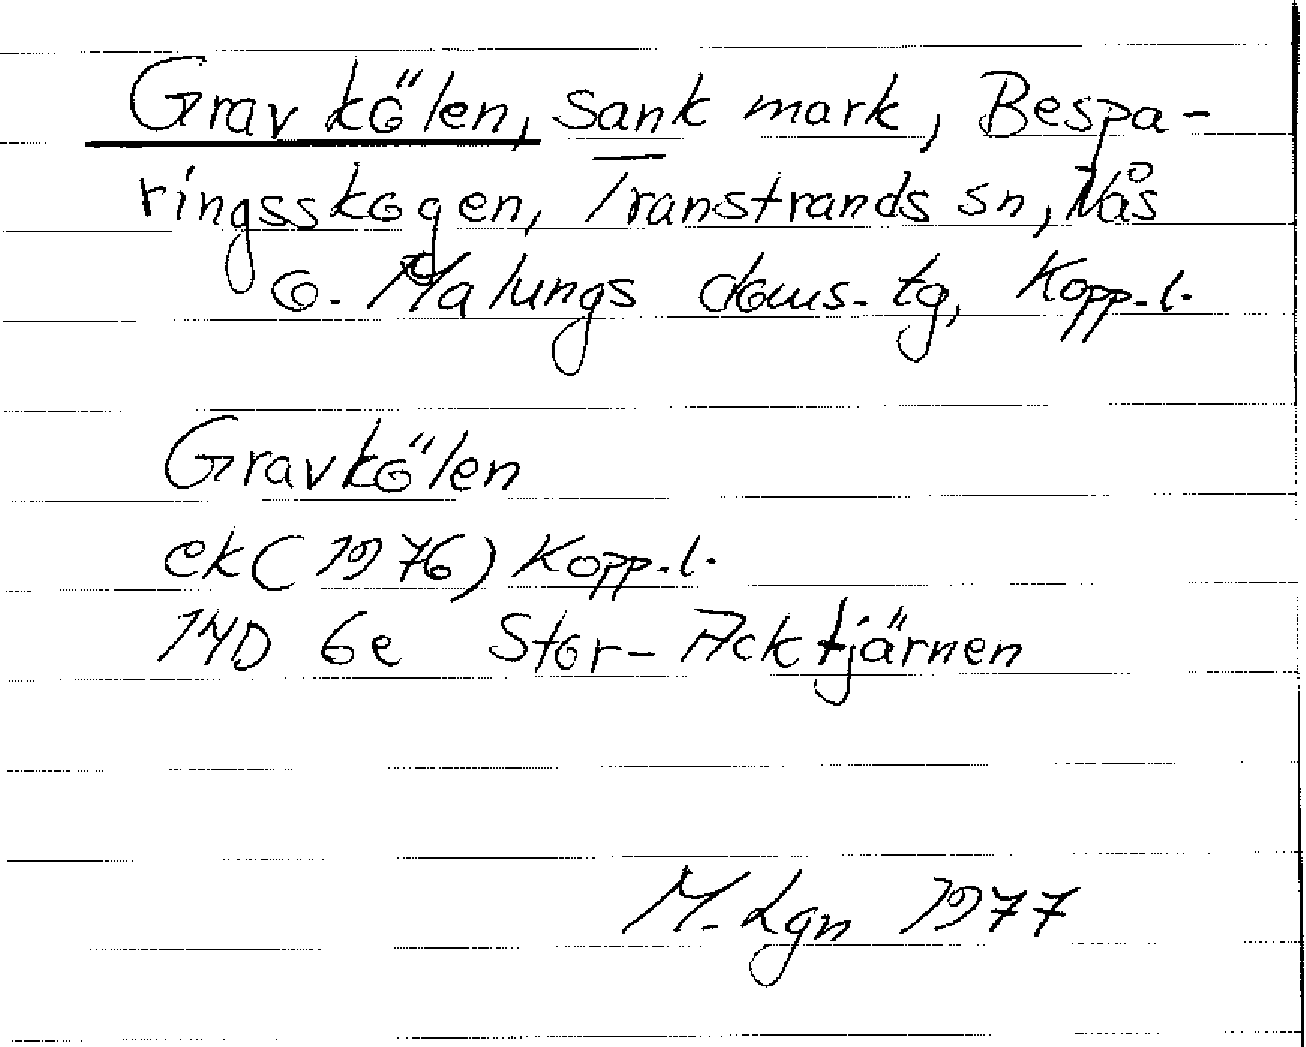 Gravkölen, sank mark, Bespa-
ringsskogen, Transtrands sn, Nås
o. Malungs doms. tg, Kopp.l.
Gravkölen
ek (1976) Kopp.l.
14D 6e Stor-Acktjärnen
M. Lgn 1977